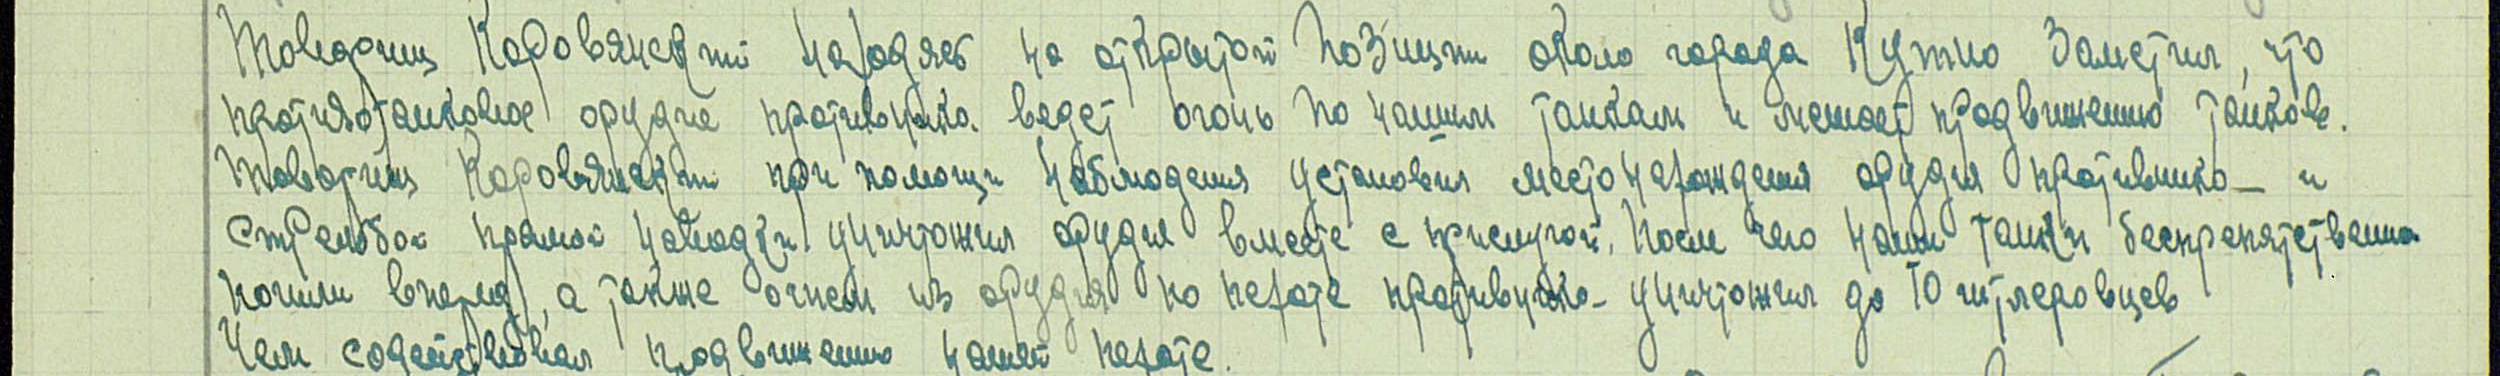 Товарищ Каровянский находясь на открытой позиции около города Кутно заметил, что
противотанковое орудие противника ведет огонь по нашим танкам и мешает продвижению танков.
Товарищ Каровянский при помощи наблюдения установил место нахождения орудия противника и
стрельбой прямой наводки уничтожил орудия вместе с прислугой. После чего наши танки беспрепятственно
пошли вперед, а также огнем из орудия по пехоте противника уничтожил до 10 гитлеровцев
Чем содействовал продвижению нашей пехоте.